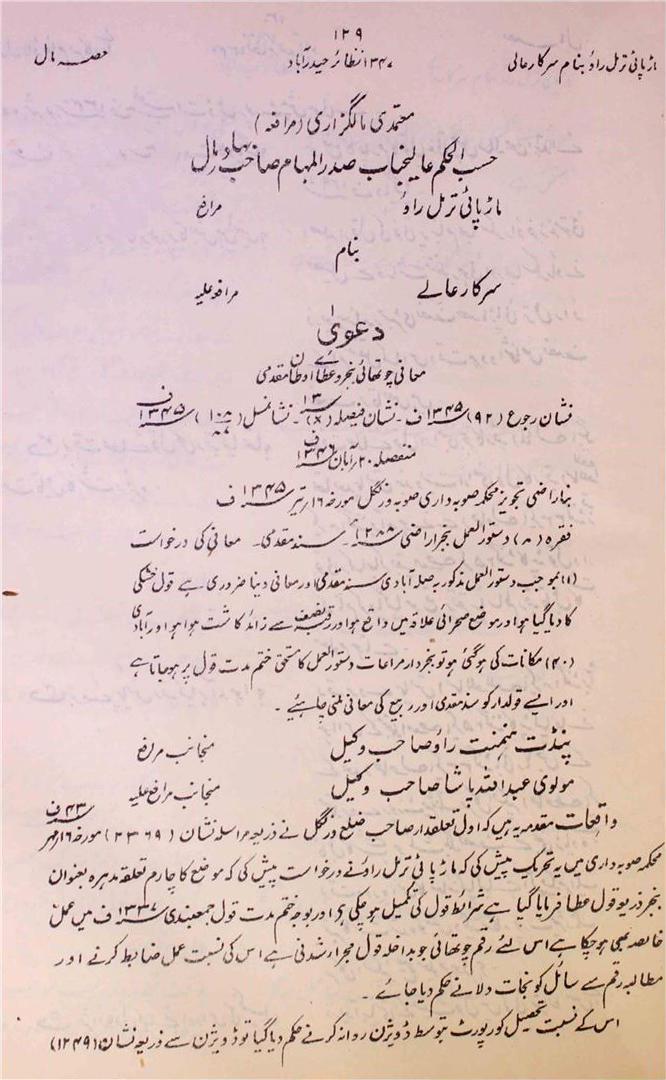 ۱۲۹
ماڑپائی ترمل راؤ بنام سرکار عالی ۱۳۴۷ نظائر حیدرآباد حصہ مال
معتمدی مالگزاری (مرافعہ)
حسب الحکم عالیجناب صدر المہام صاحب بہادر مال
ماڑپائی ترمل راؤ مرافع
بنام
سرکار عالے مرافعہ علیہ
دعویٰ
معافی چوتھائی بنجر و عطائے وطن مقدمی
نشان رجوع (۹۲) ۱۳۴۵ف۔ نشان فیصلہ (۱۳/۸) نشانمثل (۱۰۸) ۱۳۴۵ف
منفصلہ ۲۰؍ آبان ۱۳۴۶ف
بناراضی تجویز محکمہ صوبہ داری صوبہ ورنگل مورخہ ۱۶؍ تیر ۱۳۴۵ ف
فقرہ (۸) دستور العمل بنجر اراضی ۱۲۸۸۔ سند مقدمی۔ معافی کی درخواست
(۱) بموجب دستور العمل مذکور بہ صلہ آبادی سند مقدمی اور معافی دینا ضروری ہے قول خشکی
کا دیا گیا ہو اور موضع صحرائی علاقہ میں واقع ہو اور رقبہ نصف سے زائد کاشت ہوا ہو اور آبادی
(۴۰) مکانات کی ہوگئی ہو تو بنجردار مراعات دستور العمل کا مستحق ختم مدت قول پر ہو جاتا ہے
اور ایسے قولدار کو سند مقدمی اور ربیع کی معافی ملنی چاہئیے۔
پنڈت ہنمنت راؤ صاحب وکیل منجانب مرافع
مولوی عبداللہ پاشا صاحب وکیل منجانب مرافع علیہ
واقعات مقدمہ یہ ہیں کہ اول تعلقدار صاحب ضلع ورنگل نے ذریعہ مراسلہ نشان (۲۳۶۹) مورخہ ۱۶؍ مہر ۴۳ف
محکمہ صوبہ داری میں یہ تحریک پیش کی کہ ماڑپائی ترمل راؤ نے درخواست پیش کی کہ موضع کاچارم تعلقہ مدہرہ بعنوان
بنجر ذریعہ قول عطا فرمایا گیا ہے شرائط قول کی تکمیل ہو چکی ہے اور بوجہ ختم مدت قول جمعبندی ۱۳۳۷ ف میں عمل
خالصہ بھی ہو چکا ہے اس لئے رقم چوتھائی جو بداخلہ قول مجرا شدنی ہے اس کی نسبت عمل ضابطہ کرنے اور
مطالبہ رقم سے سائل کو نجات دلانے حکم دیا جائے۔
اس کے نسبت تحصیل کو رپورٹ بتوسط ڈویژن روانہ کرنے حکم دیا گیا تو ڈویژن سے ذریعہ نشان (۱۲۴۹)